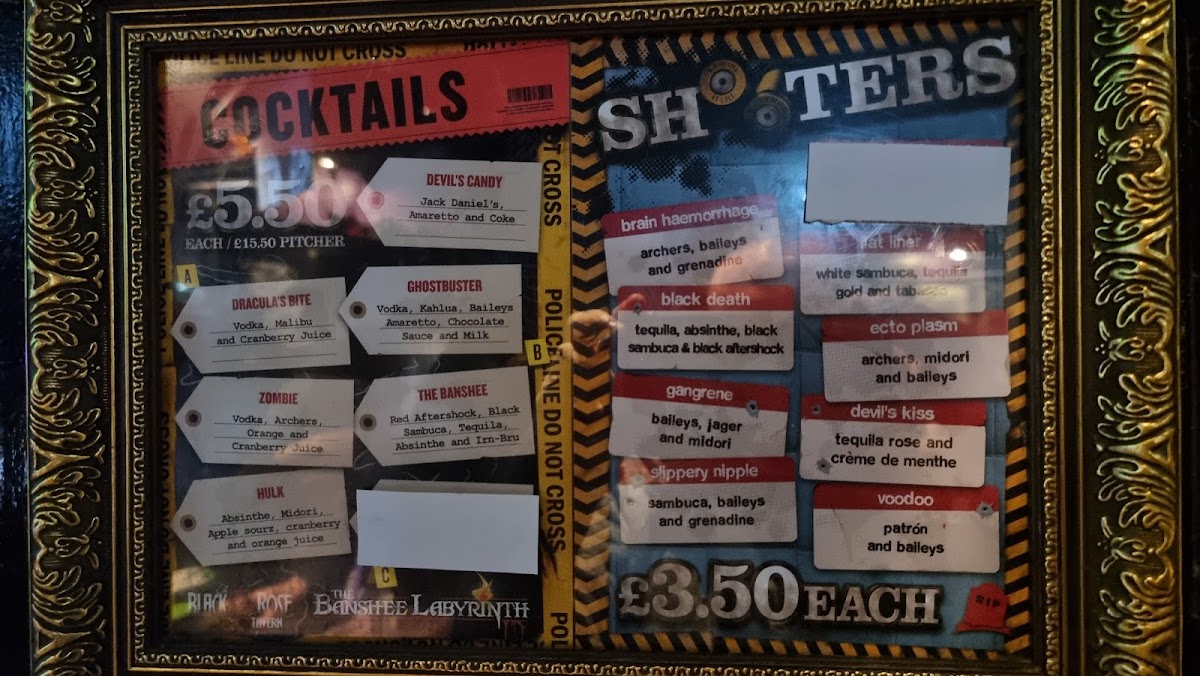 POLICE LINE DO NOT CROSS
COCKTAILS
£5.50
EACH / £15.50 PITCHER
DEVIL'S CANDY
Jack Daniel's,
Amaretto and Coke
A
DRACULA'S BITE
Vodka, Malibu
and Cranberry Juice
GHOSTBUSTER
Vodka, Kahlua, Baileys
Amaretto, Chocolate
Sauce and Milk
B
ZOMBIE
Vodka, Archers,
Orange and
Cranberry Juice
THE BANSHEE
Red Aftershock, Black
Sambuca, Tequila,
Absinthe and Irn-Bru
HULK
Absinthe, Midori,
Apple sourz, cranberry
and orange juice
C
BLACK ROSE
TAVERN
THE
BANSHEE LABYRINTH
T CROSS
POLICE LINE DO NOT CROSS
POLI
SHOOTERS
brain haemorrhage
archers, baileys
and grenadine
flat liner
white sambuca, tequila
gold and tabasco
black death
tequila, absinthe, black
sambuca & black aftershock
ecto plasm
archers, midori
and baileys
gangrene
baileys, jager
and midori
devil's kiss
tequila rose and
crème de menthe
slippery nipple
sambuca, baileys
and grenadine
voodoo
patrón
and baileys
£3.50 EACH
RIP